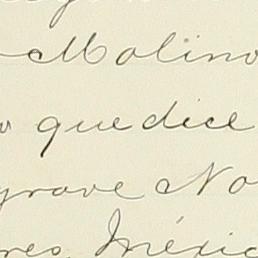 Molino
que dice
grave No
res, México